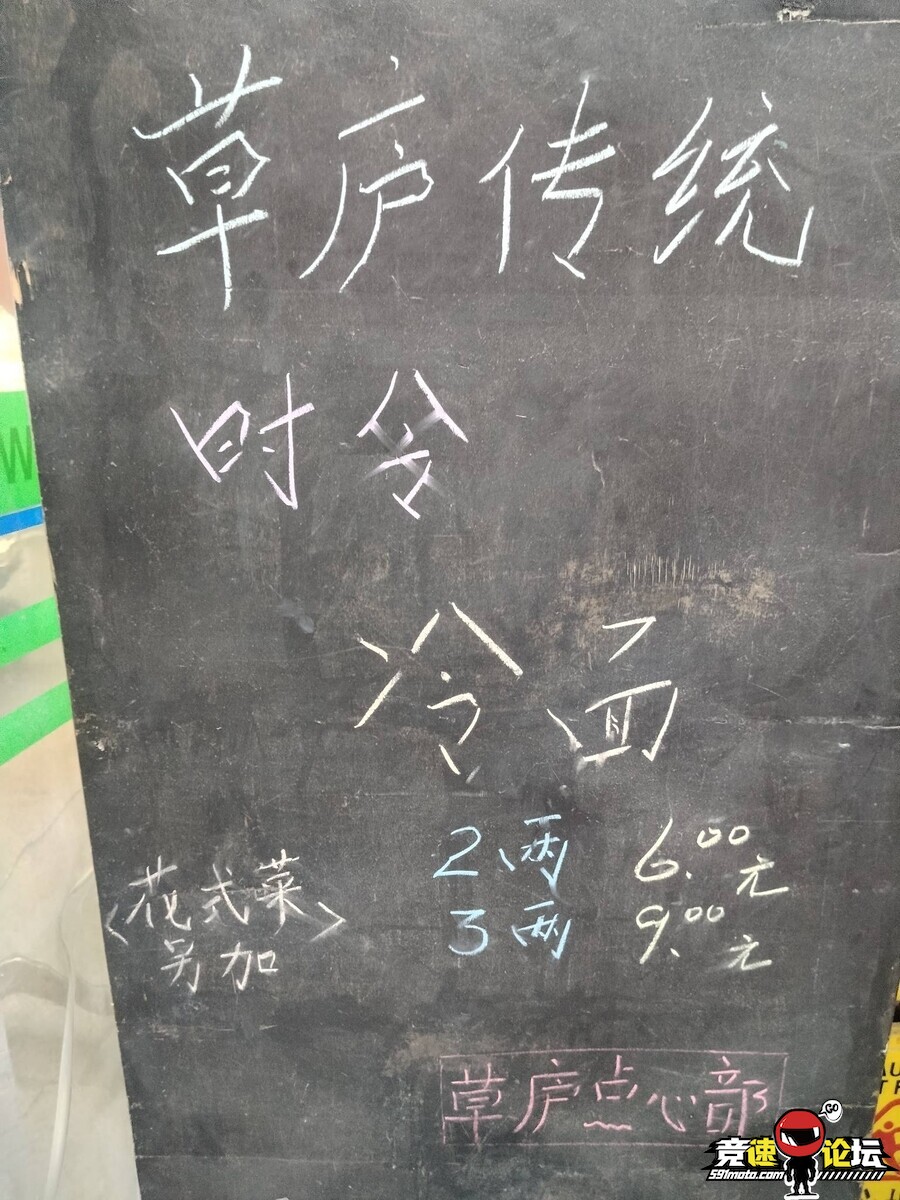 草庐传统
时令
冷面
2两 6.00元
<花式菜>
3两 9.00元
另加
草庐点心部
GO
竞速论坛
591moto.com